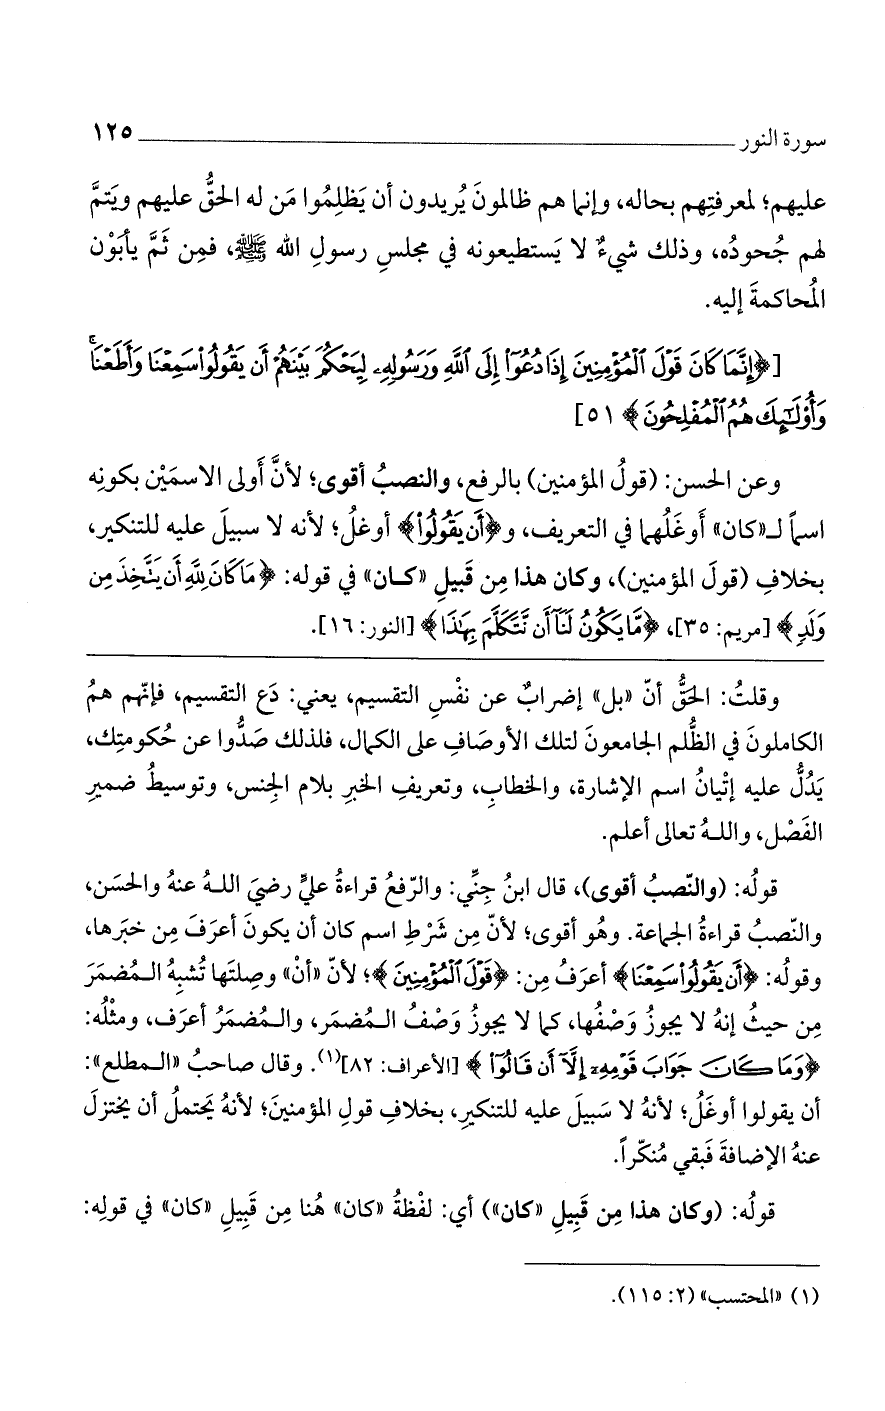 سورة النور ــــــــــــــــــــ ١٢٥
عليهم؛ لمعرفتِهم بحاله، وإنما هم ظالمونَ يُريدون أن يَظلِمُوا مَن له الحقُّ عليهم ويَتمَّ
لهم جُحودُه، وذلك شيءٌ لا يَستطيعونه في مجلسِ رسولِ الله ﷺ، فمِن ثَمَّ يأبَوْن
المُحاكمةَ إليه.
[﴿إِنَّمَا كَانَ قَوْلَ ٱلْمُؤْمِنِينَ إِذَا دُعُوٓا۟ إِلَى ٱللَّهِ وَرَسُولِهِۦ لِيَحْكُمَ بَيْنَهُمْ أَن يَقُولُوا۟ سَمِعْنَا وَأَطَعْنَا ۚ
وَأُو۟لَٰٓئِكَ هُمُ ٱلْمُفْلِحُونَ﴾ ٥١]
وعن الحسن: (قولُ المؤمنين) بالرفع، والنصبُ أقوى؛ لأنَّ أَولى الاسمَيْن بكونِه
اسماً لـ«كان» أَوغَلُهما في التعريف، و﴿أَن يَقُولُوا۟﴾ أوغلُ؛ لأنه لا سبيلَ عليه للتنكير،
بخلافِ (قولَ المؤمنين)، وكان هذا مِن قَبيلِ «كـان» في قوله: ﴿مَا كَانَ لِلَّهِ أَن يَتَّخِذَ مِن
وَلَدٍ﴾ [مريم: ٣٥]، ﴿مَّا يَكُونُ لَنَآ أَن نَّتَكَلَّمَ بِهَٰذَا﴾ [النور: ١٦].
وقلتُ: الحَقُّ أنّ «بل» إضرابٌ عن نفْسِ التقسيم، يعني: دَع التقسيم، فإنّهم همُ
الكاملونَ في الظُّلم الجامعونَ لتلك الأوصَافِ على الكمال، فلذلك صَدُّوا عن حُكومتِك،
يَدُلُّ عليه إتْيانُ اسم الإشارة، والخطابِ، وتعريفِ الخبرِ بلام الجِنس، وتوسيطُ ضميرِ
الفَصْل، واللـهُ تعالى أعلم.
قولُه: (والنّصبُ أقوى)، قال ابنُ جِنِّي: والرّفعُ قراءةُ عليٍّ رضيَ اللـهُ عنهُ والحسَن،
والنّصبُ قراءةُ الجماعة. وهُو أقوى؛ لأنّ مِن شَرْطِ اسم كان أن يكونَ أعرَفَ مِن خبَرها،
وقولُه: ﴿أَن يَقُولُوا۟ سَمِعْنَا﴾ أعرَفُ مِن: ﴿قَوْلَ ٱلْمُؤْمِنِينَ﴾؛ لأنّ «أنْ» وصِلتَها تُشبِهُ الـمُضمَرَ
مِن حيثُ إنهُ لا يجوزُ وَصْفُها، كما لا يجوزُ وَصْفُ الـمُضمَر، والـمُضمَرُ أعرَف، ومثْلُه:
﴿وَمَا كَانَ جَوَابَ قَوْمِهِۦٓ إِلَّآ أَن قَالُوٓا۟﴾ [الأعراف: ٨٢](١). وقال صاحبُ «الـمطلع»:
أن يقولوا أوغَلُ؛ لأنهُ لا سَبيلَ عليه للتنكيرِ، بخلافِ قولِ المؤمنينَ؛ لأنهُ يَحتملُ أن يختزلَ
عنهُ الإضافةَ فَبقي مُنكّراً.
قولُه: (وكان هذا مِن قَبِيلِ «كان») أي: لفْظةُ «كان» هُنا مِن قَبِيلِ «كان» في قولِه:
(١) «المحتسب» (٢: ١١٥).